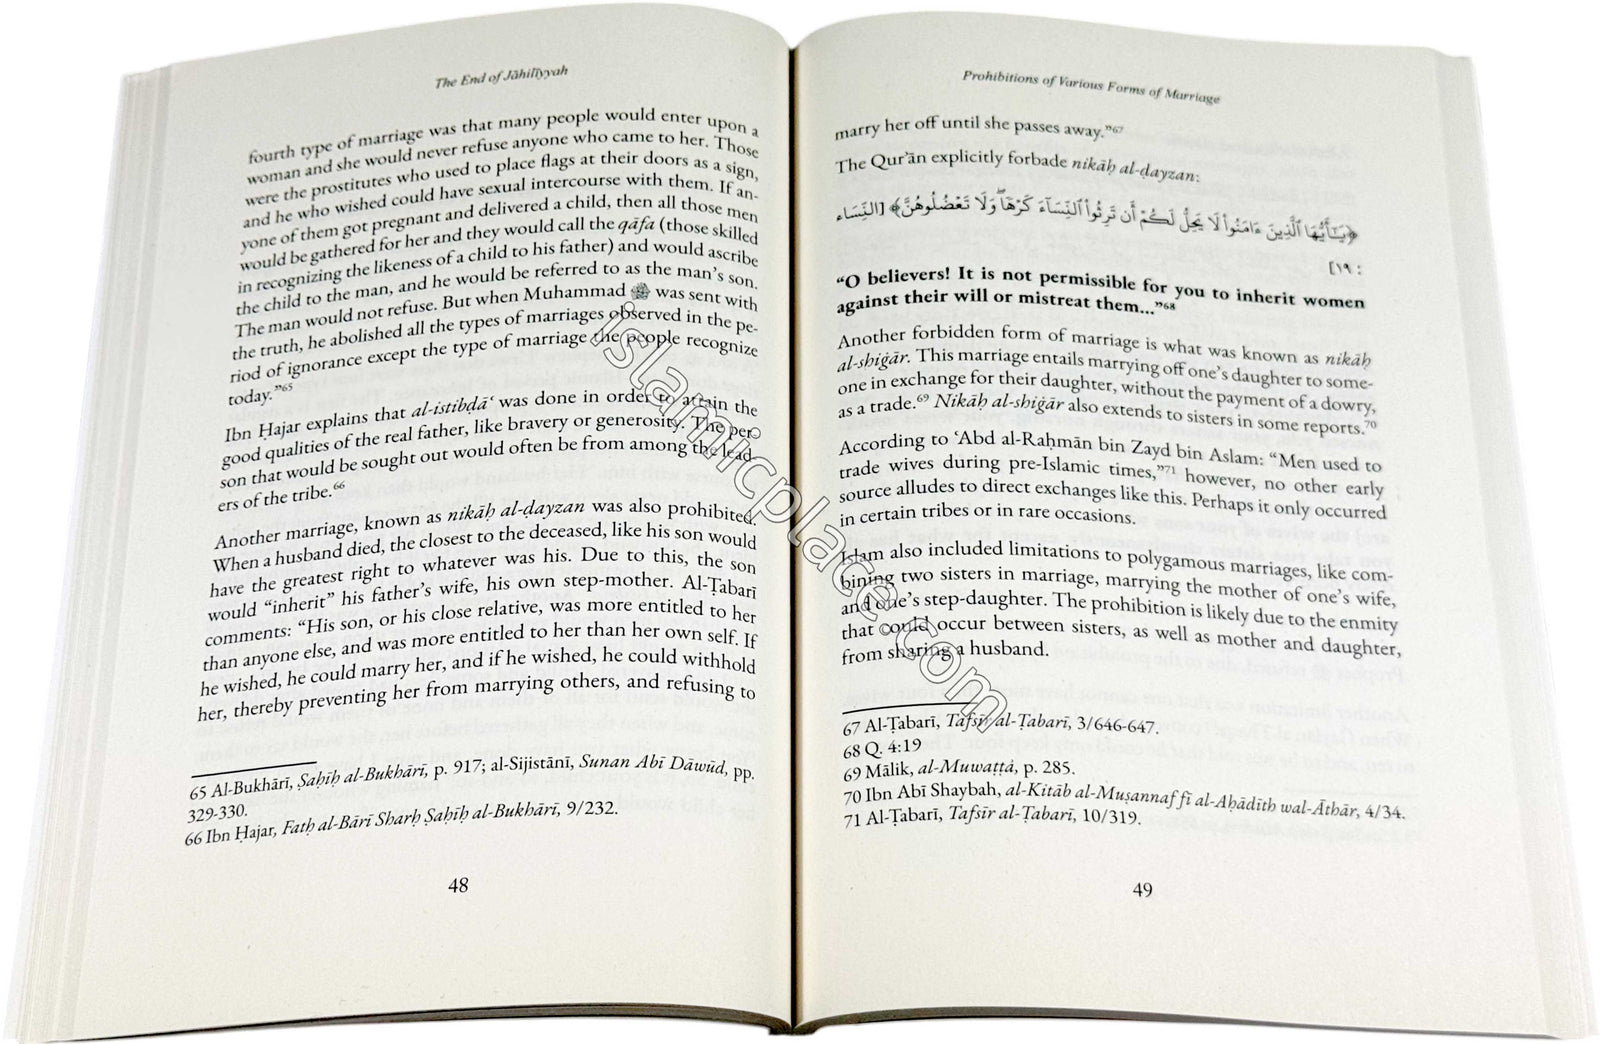 The End of Jāhilīyyah
fourth type of marriage was that many people would enter upon a
woman and she would never refuse anyone who came to her. Those
were the prostitutes who used to place flags at their doors as a sign,
and he who wished could have sexual intercourse with them. If an-
yone of them got pregnant and delivered a child, then all those men
would be gathered for her and they would call the qāfa (those skilled
in recognizing the likeness of a child to his father) and would ascribe
the child to the man, and he would be referred to as the man's son.
The man would not refuse. But when Muhammad ﷺ was sent with
the truth, he abolished all the types of marriages observed in the pe-
riod of ignorance except the type of marriage the people recognize
today.”65
Ibn Ḥajar explains that al-istibḍāʿ was done in order to attain the
good qualities of the real father, like bravery or generosity. The per-
son that would be sought out would often be from among the lead-
ers of the tribe.66
Another marriage, known as nikāḥ al-ḍayzan was also prohibited.
When a husband died, the closest to the deceased, like his son would
have the greatest right to whatever was his. Due to this, the son
would “inherit” his father's wife, his own step-mother. Al-Ṭabarī
comments: “His son, or his close relative, was more entitled to her
than anyone else, and was more entitled to her than her own self. If
he wished, he could marry her, and if he wished, he could withhold
her, thereby preventing her from marrying others, and refusing to
65 Al-Bukhārī, Ṣaḥīḥ al-Bukhārī, p. 917; al-Sijistānī, Sunan Abī Dāwūd, pp.
329-330.
66 Ibn Ḥajar, Fatḥ al-Bārī Sharḥ Ṣaḥīḥ al-Bukhārī, 9/232.
48
Prohibitions of Various Forms of Marriage
marry her off until she passes away.”67
The Qur'ān explicitly forbade nikāḥ al-ḍayzan:
﴿يَـٰٓأَيُّهَا ٱلَّذِينَ ءَامَنُوا۟ لَا يَحِلُّ لَكُمْ أَن تَرِثُوا۟ ٱلنِّسَآءَ كَرْهًا ۖ وَلَا تَعْضُلُوهُنَّ﴾ [النِّسَاء
: ١٩]
“O believers! It is not permissible for you to inherit women
against their will or mistreat them...”68
Another forbidden form of marriage is what was known as nikāḥ
al-shiġār. This marriage entails marrying off one's daughter to some-
one in exchange for their daughter, without the payment of a dowry,
as a trade.69 Nikāḥ al-shiġār also extends to sisters in some reports.70
According to ʿAbd al-Raḥmān bin Zayd bin Aslam: “Men used to
trade wives during pre-Islamic times,”71 however, no other early
source alludes to direct exchanges like this. Perhaps it only occurred
in certain tribes or in rare occasions.
Islam also included limitations to polygamous marriages, like com-
bining two sisters in marriage, marrying the mother of one's wife,
and one's step-daughter. The prohibition is likely due to the enmity
that could occur between sisters, as well as mother and daughter,
from sharing a husband.
67 Al-Ṭabarī, Tafsīr al-Ṭabarī, 3/646-647.
68 Q. 4:19
69 Mālik, al-Muwaṭṭā, p. 285.
70 Ibn Abī Shaybah, al-Kitāb al-Muṣannaf fī al-Aḥādīth wal-Āthār, 4/34.
71 Al-Ṭabarī, Tafsīr al-Ṭabarī, 10/319.
49
islamicplace.com